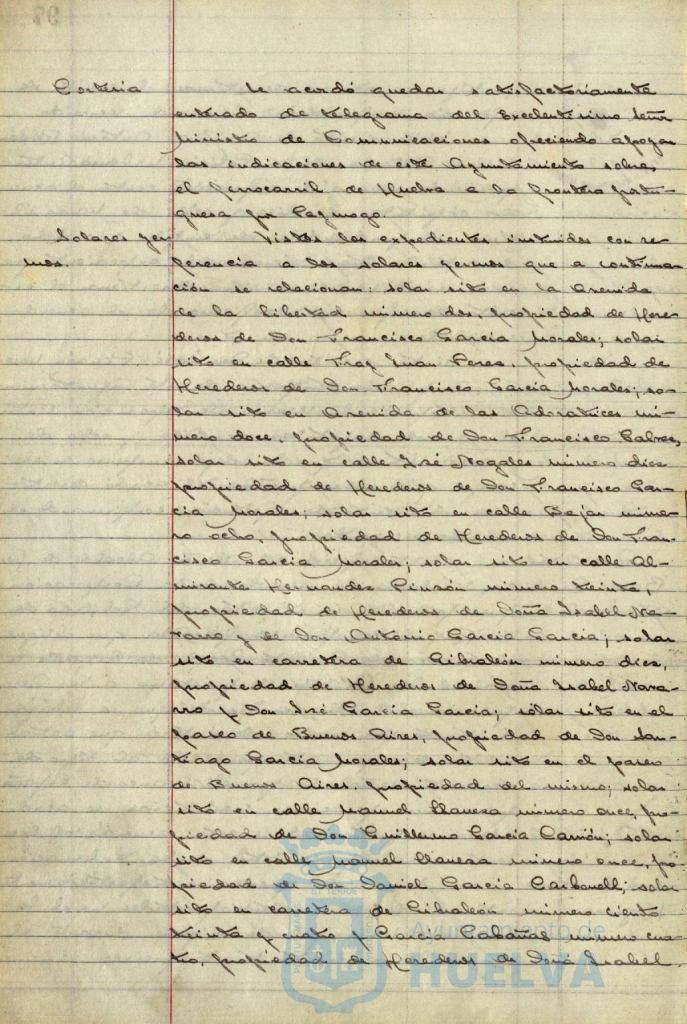 Cortesia
Se acordó quedar satisfactoriamente
enterado de telegrama del Excelentísimo Señor
Ministro de Comunicaciones ofreciendo apoyar
las indicaciones de este Ayuntamiento sobre
el ferrocarril de Huelva a la frontera portu-
guesa por Paymogo.
Solares yer
mos.
Vistos los expedientes instruidos con re-
ferencia a los solares yermos que a continua-
ción se relacionan: solar sito en la Avenida
de la Libertad número dos, propiedad de Here-
deros de Don Francisco García Morales; solar
sito en calle Fray Juan Perez, propiedad de
Herederos de Don Francisco García Morales; so-
lar sito en Avenida de las Adoratrices nú-
mero doce, propiedad de Don Francisco
solar sito en calle José Nogales número diez
propiedad de Herederos de Don Francisco Gar-
cia Morales; solar sito en calle Bejar núme-
ro ocho, propiedad de Herederos de Don Fran-
cisco García Morales; solar sito en calle Al-
mirante Hernandez Pinzón número treinta,
propiedad de Herederos de Doña Isabel Na-
varro y de Don Antonio García García; solar
sito en carretera de Gibraleón número diez,
propiedad de Herederos de Doña Isabel Nava-
rro y Don José García García; solar sito en el
paseo de Buenos Aires, propiedad de Don San-
tiago García Morales; solar sito en el paseo
de Buenos Aires, propiedad del mismo; solar
sito en calle Manuel Llaneza número once, pro-
piedad de Don Guillermo García Carrión; solar
sito en calle Manuel Llaneza número once, pro-
piedad de Don Daniel García Carbonell; solar
sito en carretera de Gibraleón número ciento
treinta y cuatro y García Cabañas número cua-
tro, propiedad de Herederos de Doña Isabel
Ayuntamiento de
HUELVA